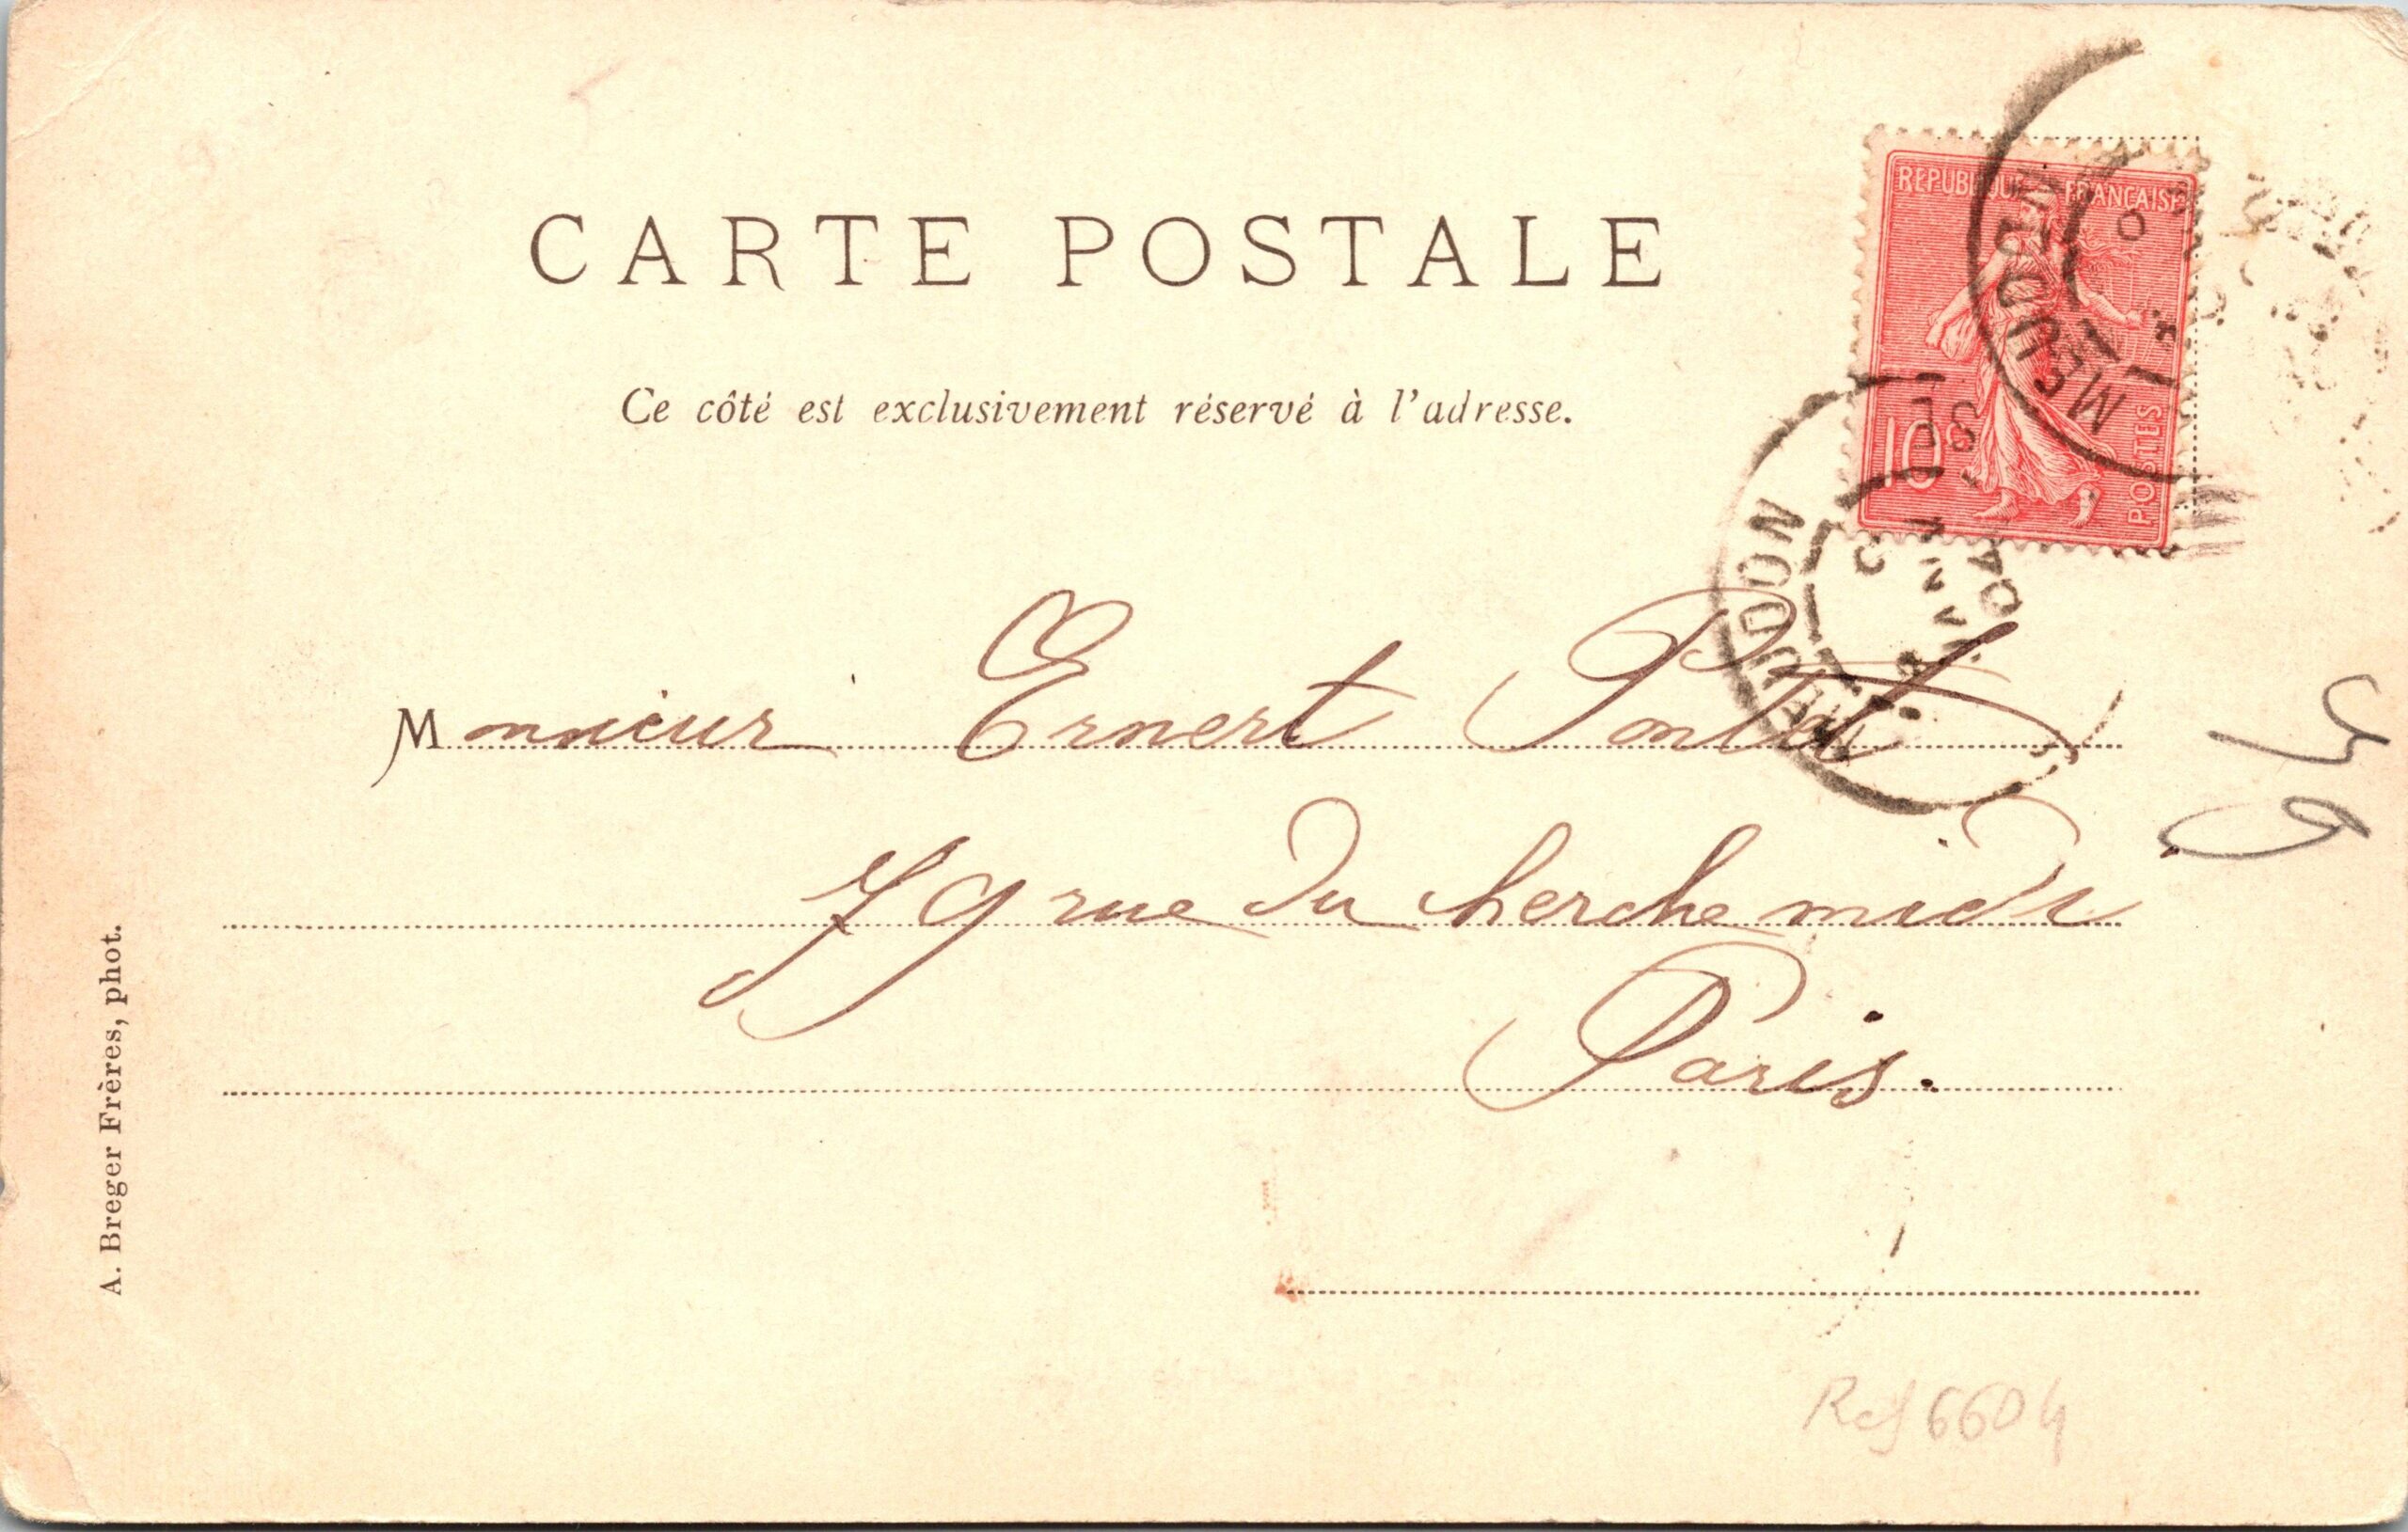 CARTE POSTALE
Ce côté est exclusivement réservé à l'adresse.
REPUBLIQUE FRANCAISE
10c
POSTES
MEUDON
MEUDON
Monsieur Ernest
79 rue du cherche midi
Paris.
A. Breger Frères, phot.
Ref 6604